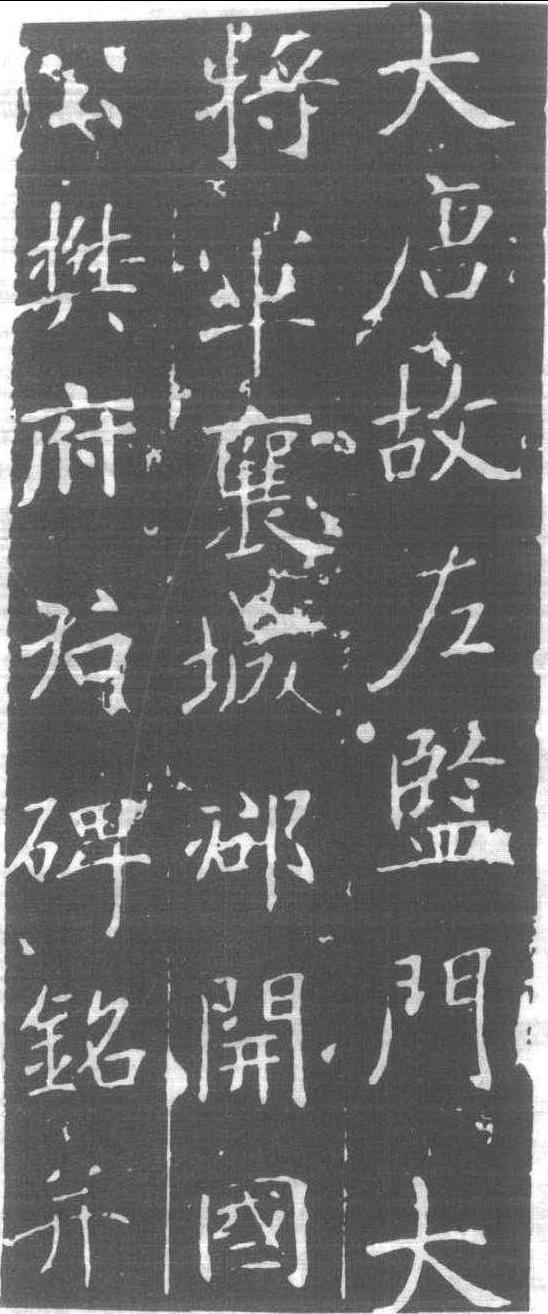 大唐故左監門大
將軍襄城郡開國
公樊府君碑銘并